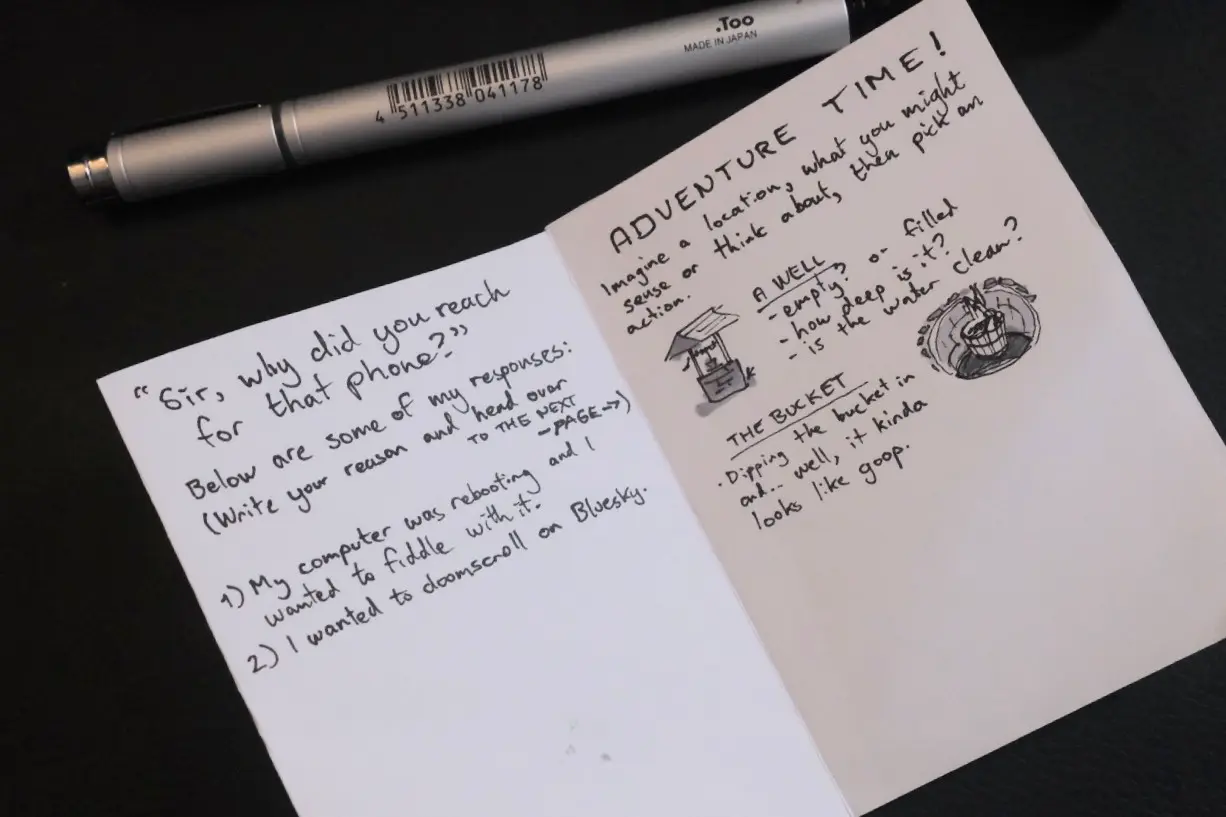 .Too
MADE IN JAPAN
4 511338 041178
"Sir, why did you reach
for that phone?"
Below are some of my responses:
(Write your reason and head over
TO THE NEXT
PAGE →)
1) My computer was rebooting and I
wanted to fiddle with it.
2) I wanted to doomscroll on Bluesky.
ADVENTURE TIME!
Imagine a location, what you might
sense or think about, then pick an
action.
A WELL
- empty? or filled
- how deep is it?
- is the water clean?
THE BUCKET
· Dipping the bucket in
and... well, it kinda
looks like goop.